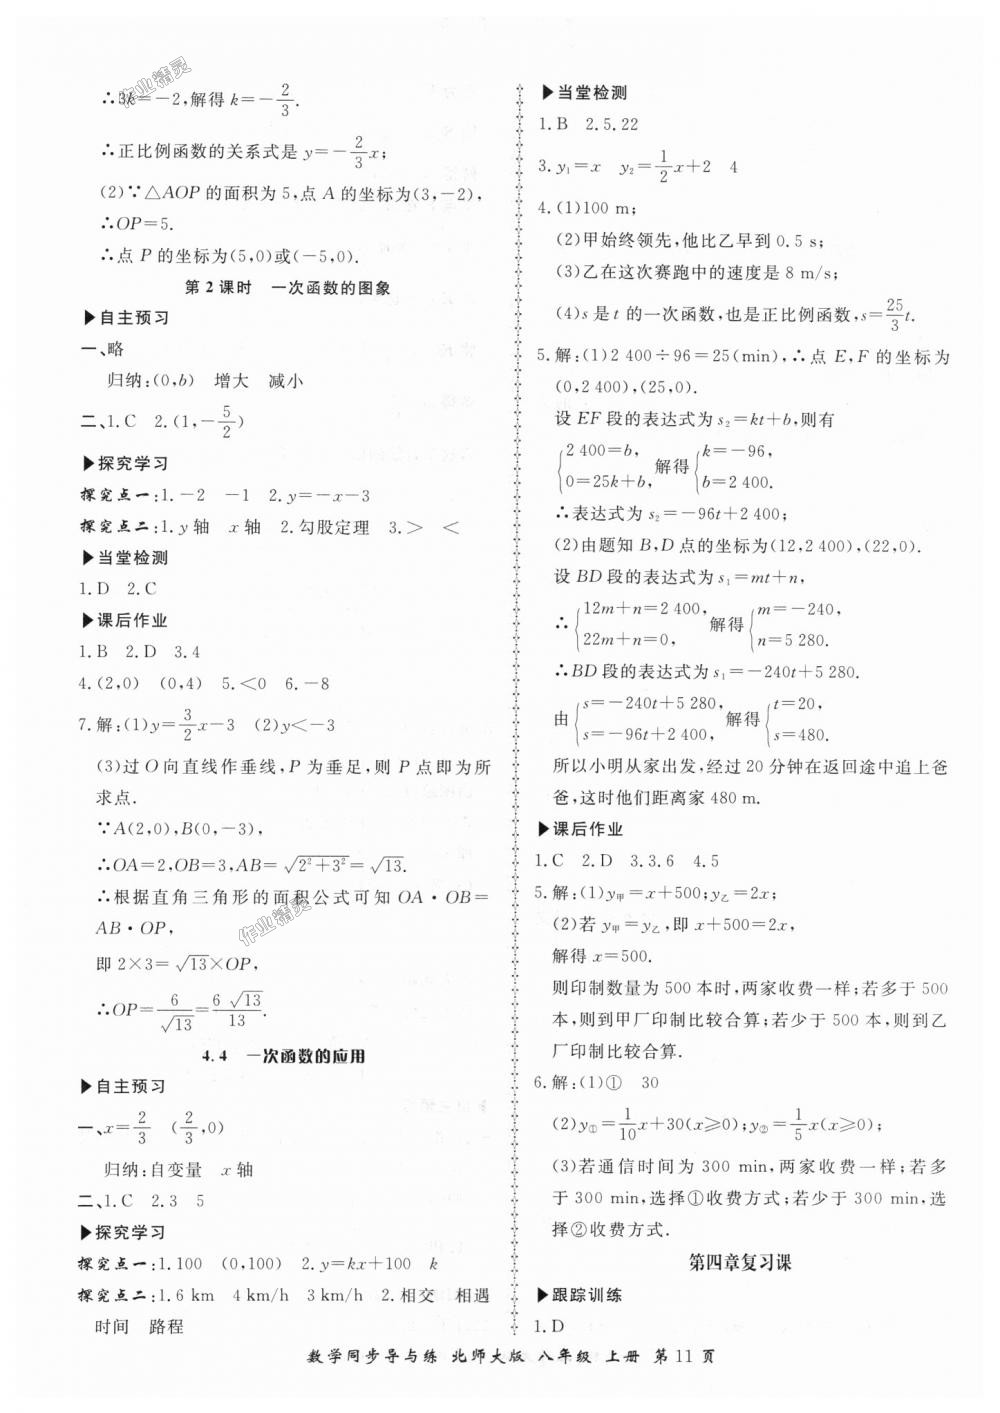 ∴3k=-2,解得 k=-2/3.
∴正比例函数的关系式是 y=-2/3x;
(2)∵△AOP 的面积为 5,点 A 的坐标为(3,-2),
∴OP=5.
∴点 P 的坐标为(5,0)或(-5,0).
第 2 课时　一次函数的图象
▶自主预习
一、略
归纳:(0,b)　增大　减小
二、1.C　2.(1,-5/2)
▶探究学习
探究点一:1.-2　-1　2.y=-x-3
探究点二:1.y 轴　x 轴　2.勾股定理　3.>　<
▶当堂检测
1.D　2.C
▶课后作业
1.B　2.D　3.4
4.(2,0)　(0,4)　5.<0　6.-8
7.解:(1)y=3/2x-3　(2)y<-3
(3)过 O 向直线作垂线,P 为垂足,则 P 点即为所
求点.
∵A(2,0),B(0,-3),
∴OA=2,OB=3,AB=√(2²+3²)=√13.
∴根据直角三角形的面积公式可知 OA·OB=
AB·OP,
即 2×3=√13×OP,
∴OP=6/√13=6√13/13.
4.4　一次函数的应用
▶自主预习
一、x=2/3　(2/3,0)
归纳:自变量　x 轴
二、1.C　2.3　5
▶探究学习
探究点一:1.100　(0,100)　2.y=kx+100　k
探究点二:1.6 km　4 km/h　3 km/h　2.相交　相遇
时间　路程
▶当堂检测
1.B　2.5.22
3.y₁=x　y₂=1/2x+2　4
4.(1)100 m;
(2)甲始终领先,他比乙早到 0.5 s;
(3)乙在这次赛跑中的速度是 8 m/s;
(4)s 是 t 的一次函数,也是正比例函数,s=25/3t.
5.解:(1)2 400÷96=25(min),∴点 E,F 的坐标为
(0,2 400),(25,0).
设 EF 段的表达式为 s₂=kt+b,则有
{2 400=b, 0=25k+b, 解得{k=-96, b=2 400.
∴表达式为 s₂=-96t+2 400;
(2)由题知 B,D 点的坐标为(12,2 400),(22,0).
设 BD 段的表达式为 s₁=mt+n,
∴{12m+n=2 400, 22m+n=0, 解得{m=-240, n=5 280.
∴BD 段的表达式为 s₁=-240t+5 280.
由{s=-240t+5 280, s=-96t+2 400, 解得{t=20, s=480.
所以小明从家出发,经过 20 分钟在返回途中追上爸
爸,这时他们距离家 480 m.
▶课后作业
1.C　2.D　3.3.6　4.5
5.解:(1)y甲=x+500;y乙=2x;
(2)若 y甲=y乙,即 x+500=2x,
解得 x=500.
则印制数量为 500 本时,两家收费一样;若多于 500
本,则到甲厂印制比较合算;若少于 500 本,则到乙
厂印制比较合算.
6.解:(1)①　30
(2)y①=1/10x+30(x≥0);y②=1/5x(x≥0);
(3)若通信时间为 300 min,两家收费一样;若多
于 300 min,选择①收费方式;若少于 300 min,选
择②收费方式.
第四章复习课
▶跟踪训练
1.D
数学同步导与练　北师大版　八年级　上册　第 11 页
作业精灵
作业精灵